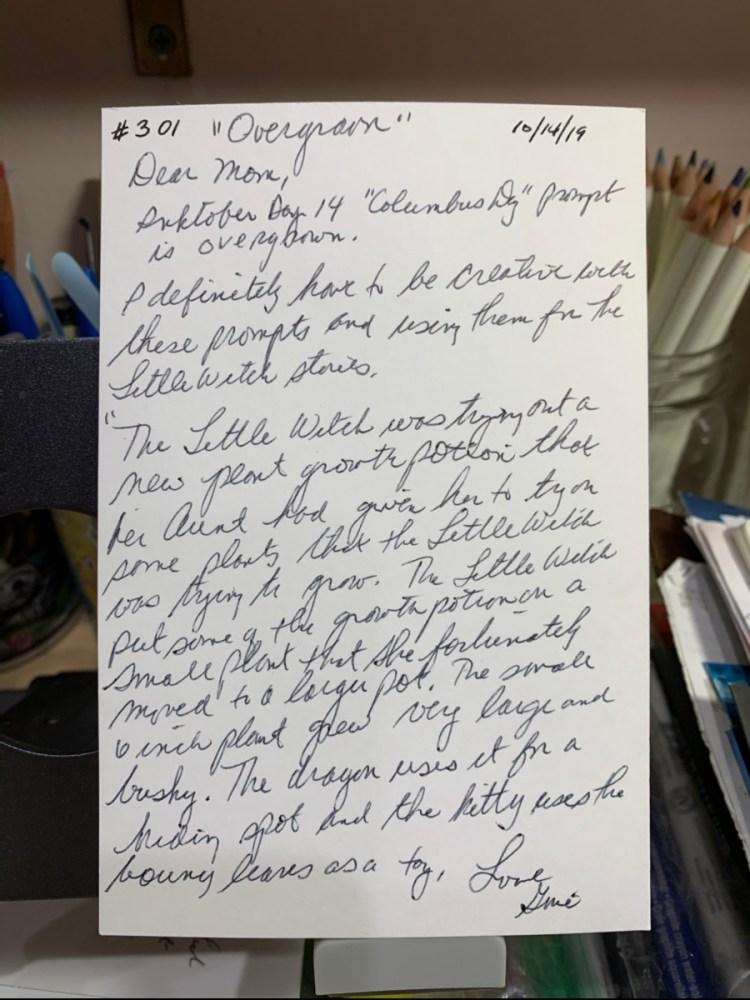 #301 "Overgrown" 10/14/19
Dear Mom,
Inktober Day 14 "Columbus Dy" prompt
is overgrown.
I definitely have to be creative with
these prompts and using them for the
Little Witch stories.
"The Little Witch was trying out a
new plant growth potion that
her Aunt had given her to try on
some plants that the Little Witch
was trying to grow. The Little Witch
put some of the growth potion on a
small plant that she fortunately
moved to a larger pot. The small
6 inch plant grew very large and
bushy. The dragon uses it for a
hiding spot and the kitty uses the
bouncy leaves as a toy. Love